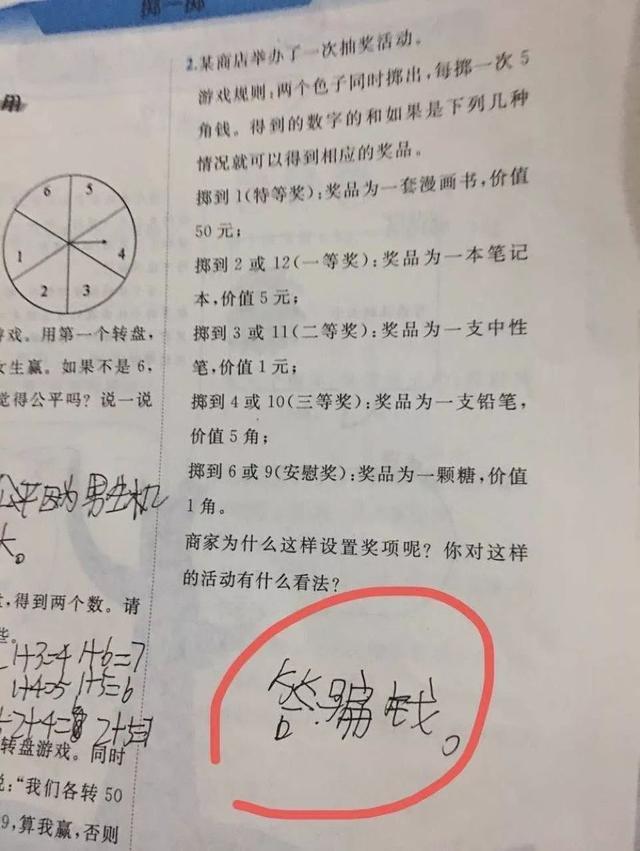 掷一掷
用
6
5
1
4
2
3
游戏。用第一个转盘,
女生赢。如果不是 6,
觉得公平吗？说一说
公平因为男生机
大。
,得到两个数。请
些。
1+3=4 1+6=7
1+4=5 1+5=6
2+5=7
转盘游戏。同时
说:“我们各转 50
9,算我赢,否则
2.某商店举办了一次抽奖活动。
游戏规则:两个色子同时掷出,每掷一次 5
角钱。得到的数字的和如果是下列几种
情况就可以得到相应的奖品。
掷到 1(特等奖):奖品为一套漫画书,价值
50 元;
掷到 2 或 12(一等奖):奖品为一本笔记
本,价值 5 元;
掷到 3 或 11(二等奖):奖品为一支中性
笔,价值 1 元;
掷到 4 或 10(三等奖):奖品为一支铅笔,
价值 5 角;
掷到 6 或 9(安慰奖):奖品为一颗糖,价值
1 角。
商家为什么这样设置奖项呢？你对这样
的活动有什么看法？
答:骗钱。